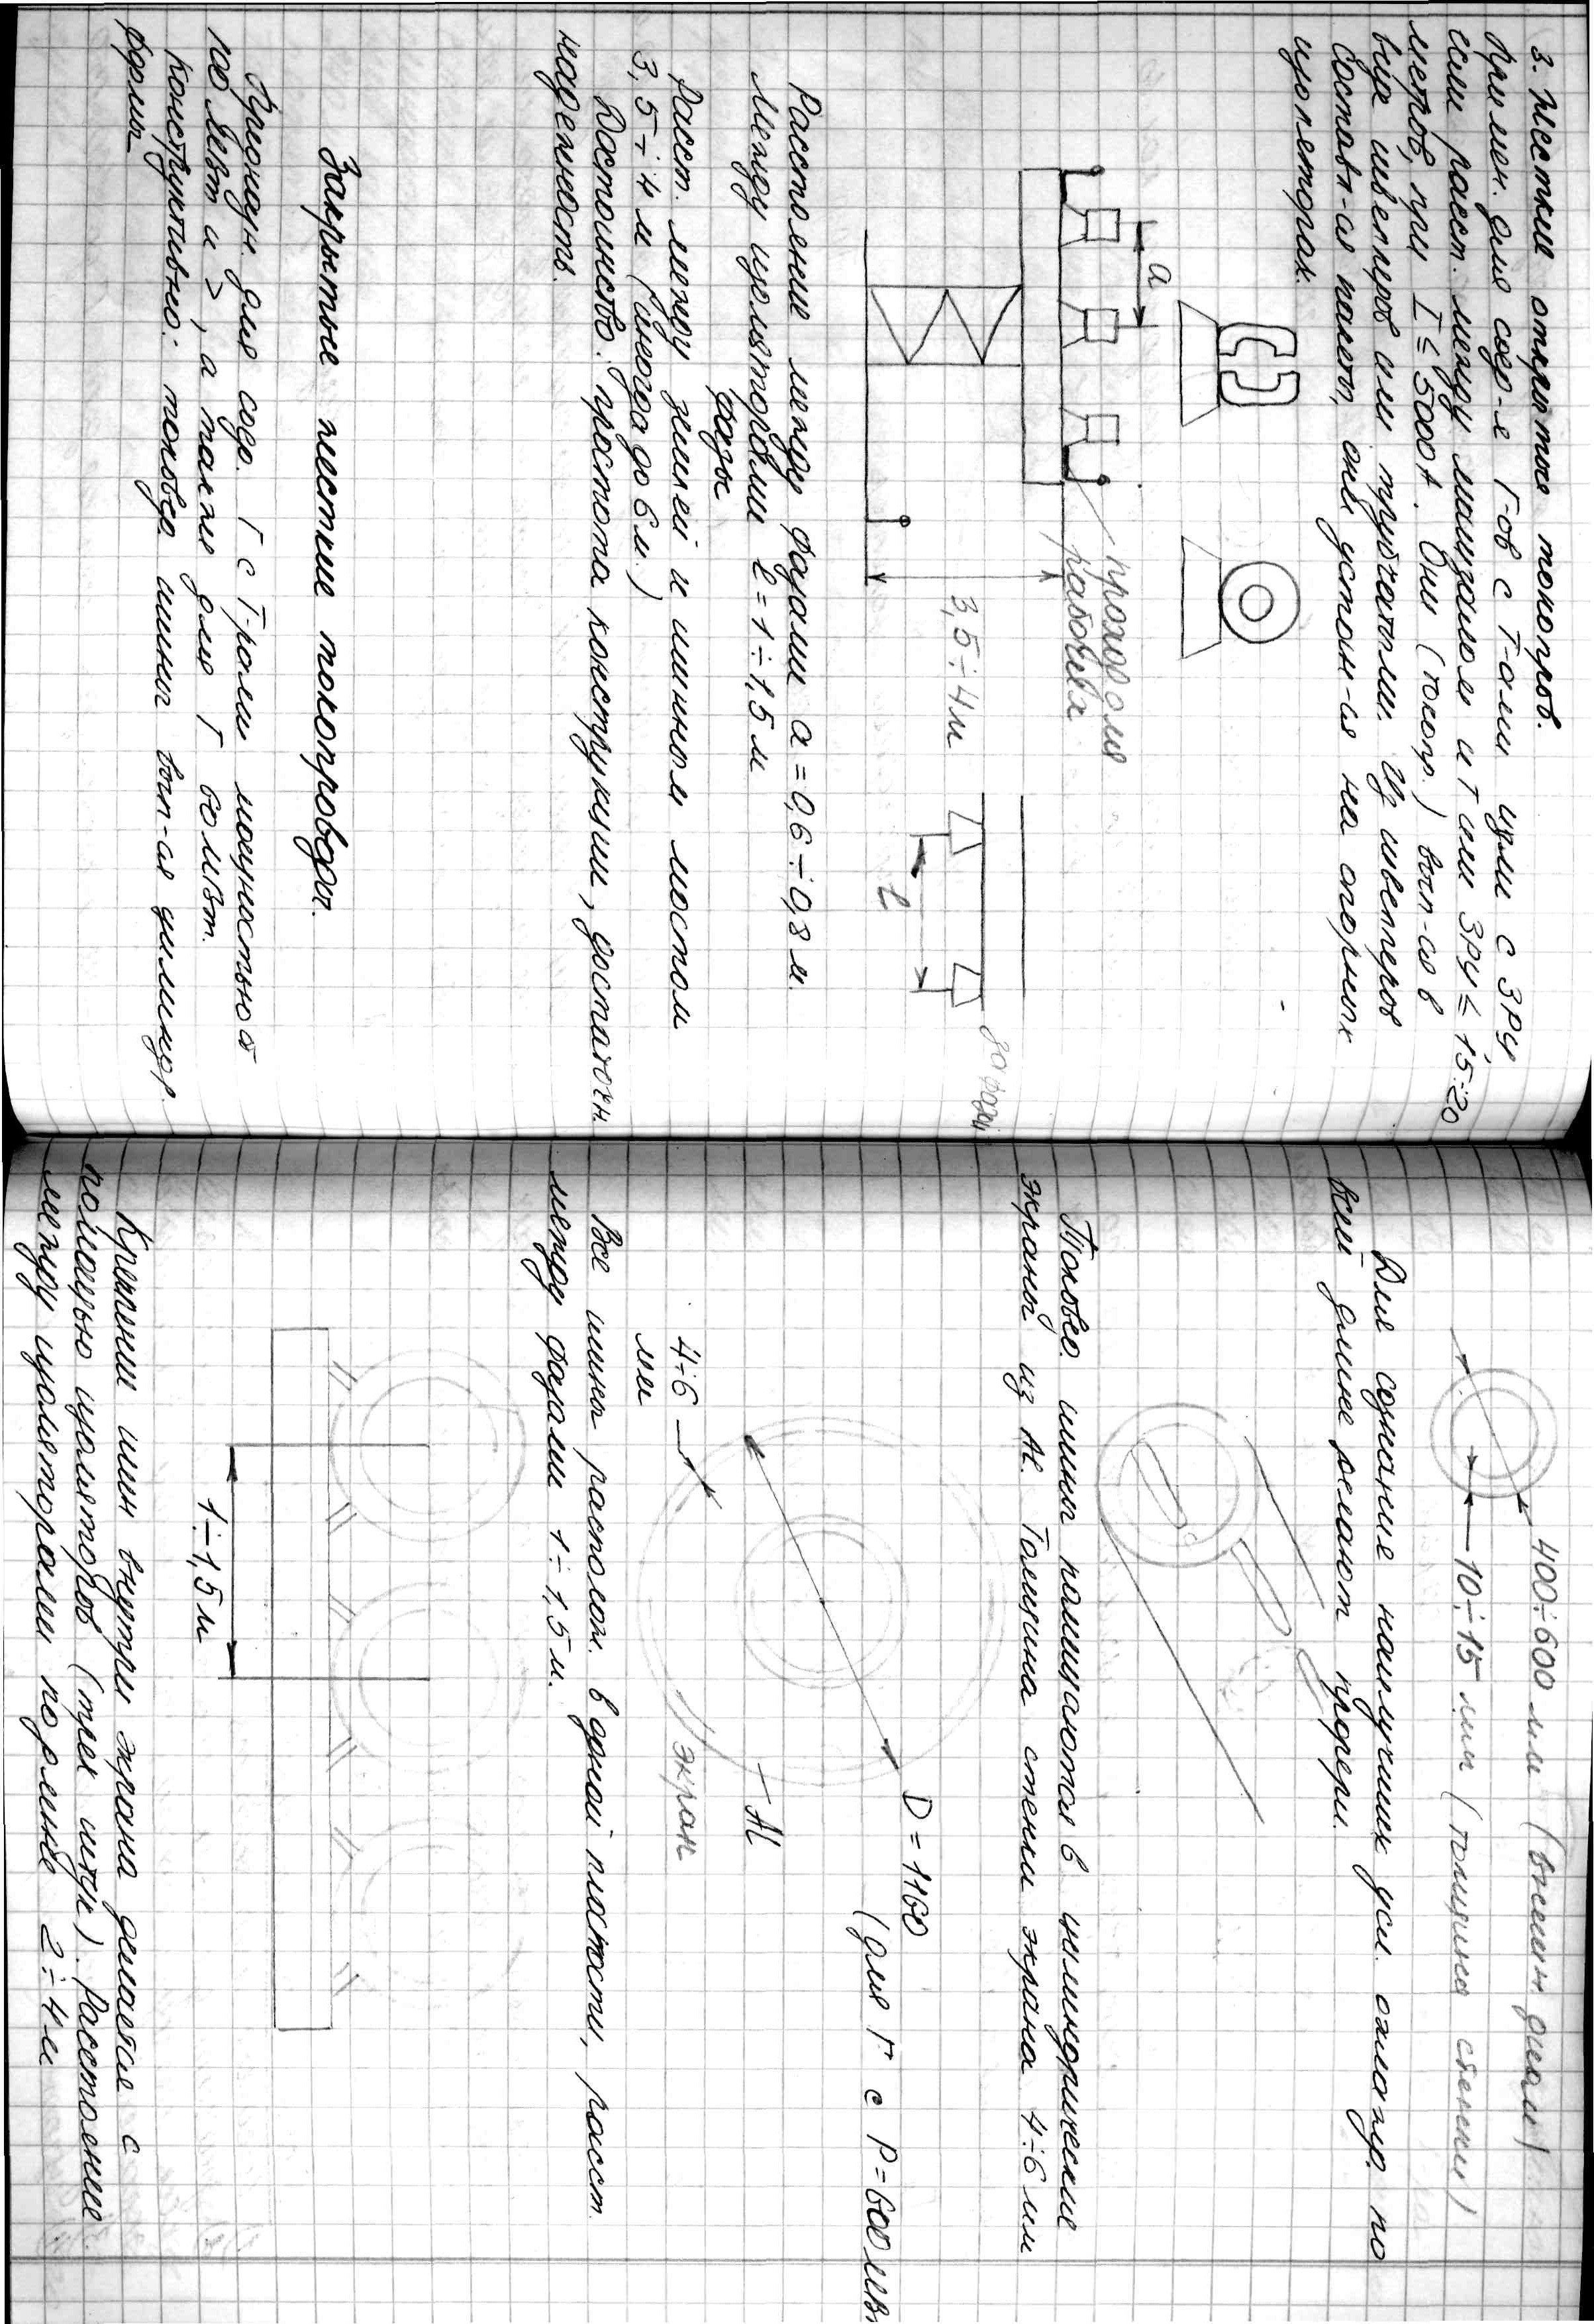 3. Жесткие открытые токопров.
Примен. для соед-я Г-ов с Т-ами или с ЗРУ,
если расст. между машзалом и Т или ЗРУ ≤ 15÷20
метров, при I ≤ 5000А. Они (токопр.) вып-ся в
виде швеллеров или трубчатыми. Из швеллеров
составл-ся пакет, они устан-ся на опорных
изоляторах.
a
проход для
рабочих
3,5÷4м
l
до фазы
Расстояние между фазами a = 0,6 ÷ 0,8 м.
Между изоляторами l = 1 ÷ 1,5 м
фазы
Расст. между землей и шинным мостом
3,5 ÷ 4 м (иногда до 6 м.)
Достоинство: простота конструкции, достаточн.
надежность.
Закрытые жесткие токопроводы.
Применяен. для соед. Г с Т-рами мощностью
100 МВт и >, а также для Г 60 МВт.
Конструктивно: токовед. шины вып-ся цилиндр.
формы
400÷600 мм (внешн. диам)
10÷15 мм (толщина стенки)
Для создания наилучших усл. охлажд. по
всей длине делают прорези.
Токовед. шины помещаются в цилиндрические
экраны из Al. Толщина стенки экрана 4÷6 мм
D = 1160
(для Г с P=600 МВт
Al
экран
4÷6
мм
Все шины располож. в одной плоскости, расст.
между фазами 1 ÷ 1,5 м.
1÷1,5м
Крепление шин внутри экрана делается с
помощью изоляторов (трех штук). Расстояние
между изоляторами по длине 2 ÷ 4 м